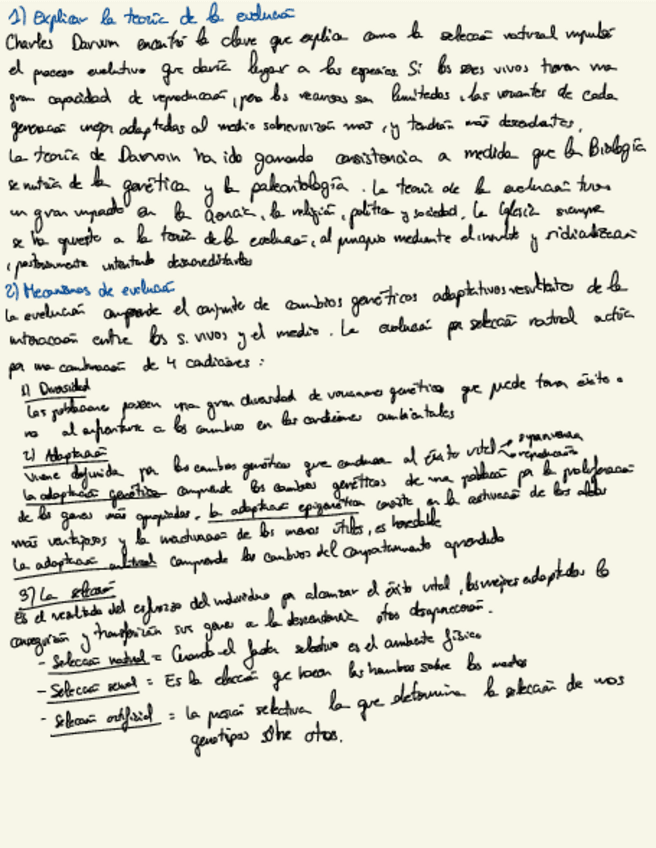 1) Explicar la teoría de la evolución
Charles Darwin encontró la clave que explica como la selección natural impulsó
el proceso evolutivo que daría lugar a las especies. Si los seres vivos tienen una
gran capacidad de reproducción, pero los recursos son limitados, las variantes de cada
generación mejor adaptadas al medio sobrevivirán más, y tendrán más descendientes.
La teoría de Darwin ha ido ganando consistencia a medida que la Biología
se nutría de la genética y la paleontología. La teoría de la evolución tuvo
un gran impacto en la ciencia, la religión, política y sociedad. La Iglesia siempre
se ha opuesto a la teoría de la evolución, al principio mediante el insulto y ridiculización
, posteriormente intentando
2) Mecanismos de evolución
La evolución comprende el conjunto de cambios genéticos adaptativos resultantes de la
interacción entre los s. vivos y el medio. La evolución por selección natural actúa
por una combinación de 4 condiciones:
1) Diversidad
Las poblaciones poseen una gran diversidad de variaciones genéticas que puede tener éxito o
no al enfrentarse a los cambios en las condiciones ambientales
2) Adaptación
Viene definida por los cambios genéticos que conducen al éxito vital → supervivencia
→ reproducción
La adaptación genética comprende los cambios genéticos de una población por la proliferación
de los genes más apropiados. La adaptación epigenética consiste en la activación de los alelos
más ventajosos y la inactivación de los menos útiles, es heredable
La adaptación cultural comprende los cambios del comportamiento aprendido
3) La selección
Es el resultado del esfuerzo del individuo por alcanzar el éxito vital, los mejores adaptados lo
conseguirán y transferirán sus genes a la descendencia otros desaparecerán.
- Selección natural = Cuando el factor selectivo es el ambiente físico
- Selección sexual = Es la elección que hacen las hembras sobre los machos
- Selección artificial = la presión selectiva la que determina la selección de unos
genotipos sobre otros.